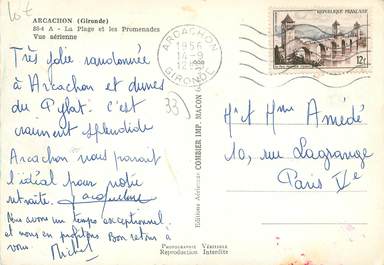 10 f
ARCACHON (Gironde)
884 A - La Plage et les Promenades
Vue aérienne
Très jolie randonnée
à Arcachon et dunes
du Pylat. C'est
vraiment splendide
Arcachon nous parait
l'idéal pour notre
retraite. Jacqueline
Nous avons un temps exceptionnel
et nous en profitons. Bon retour à
vous. Michel
33
ARCACHON
1956
GIRONDE
REPUBLIQUE FRANÇAISE
12f
Editions Aériennes COMBIER IMP. MACON
Mr et Mme Amédé
10, rue Lagrange
Paris Ve
PHOTOGRAPHIE VÉRITABLE
Reproduction Interdite